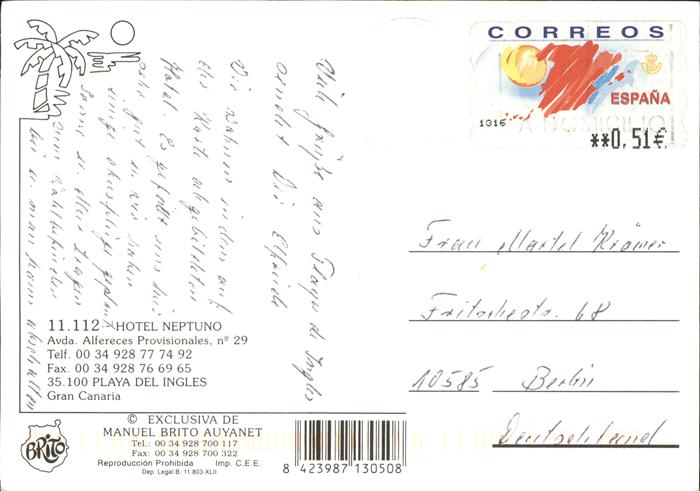 CORREOS
ESPAÑA
1316
A DOMICILIO
**0,51€
Viele Grüße aus Playa d. Ingles
sendet Dir Elfriede
Wir wohnen in dem auf
der Karte abgebildeten
Hotel. Es gefällt uns hier
sehr gut u. wir haben
einige Ausflüge geplant
Sonne u. Meer tragen
zum Wohlbefinden
bei u. man kann abschalten
Frau Krämer
Fritschestr. 68
10585 Berlin
Deutschland
11.112 - HOTEL NEPTUNO
Avda. Alfereces Provisionales, nº 29
Telf. 00 34 928 77 74 92
Fax. 00 34 928 76 69 65
35.100 PLAYA DEL INGLES
Gran Canaria
BRITO
© EXCLUSIVA DE
MANUEL BRITO AUYANET
Tel.: 00 34 928 700 117
Fax: 00 34 928 700 322
Reproducción Prohibida Imp. C.E.E.
Dep. Legal B. 11.803-XLII
8 423987 130508